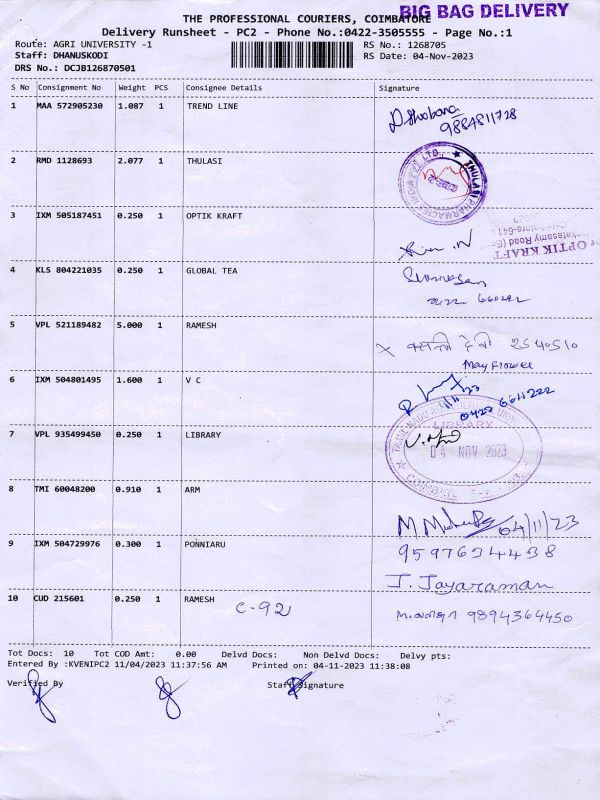 BIG BAG DELIVERY
THE PROFESSIONAL COURIERS, COIMBATORE
Delivery Runsheet - PC2 - Phone No.:0422-3505555 - Page No.:1
Route: AGRI UNIVERSITY -1
RS No.: 1268705
Staff: DHANUSKODI
RS Date: 04-Nov-2023
DRS No.: DCJB126870501
S No Consignment No Weight PCS Consignee Details Signature
1 MAA 572905230 1.087 1 TREND LINE
D. Shobana
9884811728
2 RMD 1128693 2.077 1 THULASI
THULASI PHARMACIES INDIA PVT. LTD.
3 IXM 505187451 0.250 1 OPTIK KRAFT
OPTIK KRAFT
4 KLS 804221035 0.250 1 GLOBAL TEA
5 VPL 521189482 5.000 1 RAMESH
2540510
May Flower
6 IXM 504801495 1.600 1 V C
0422 6611222
7 VPL 935499450 0.250 1 LIBRARY
LIBRARY
04 NOV 2023
8 TMI 60048200 0.910 1 ARM
04/11/23
9 IXM 504729976 0.300 1 PONNIARU
9597634438
J. Jayaraman
10 CUD 215601 0.250 1 RAMESH
C-92
9894364450
Tot Docs: 10 Tot COD Amt: 0.00 Delvd Docs: Non Delvd Docs: Delvy pts:
Entered By :KVENIPC2 11/04/2023 11:37:56 AM Printed on: 04-11-2023 11:38:08
Verified By Staff Signature